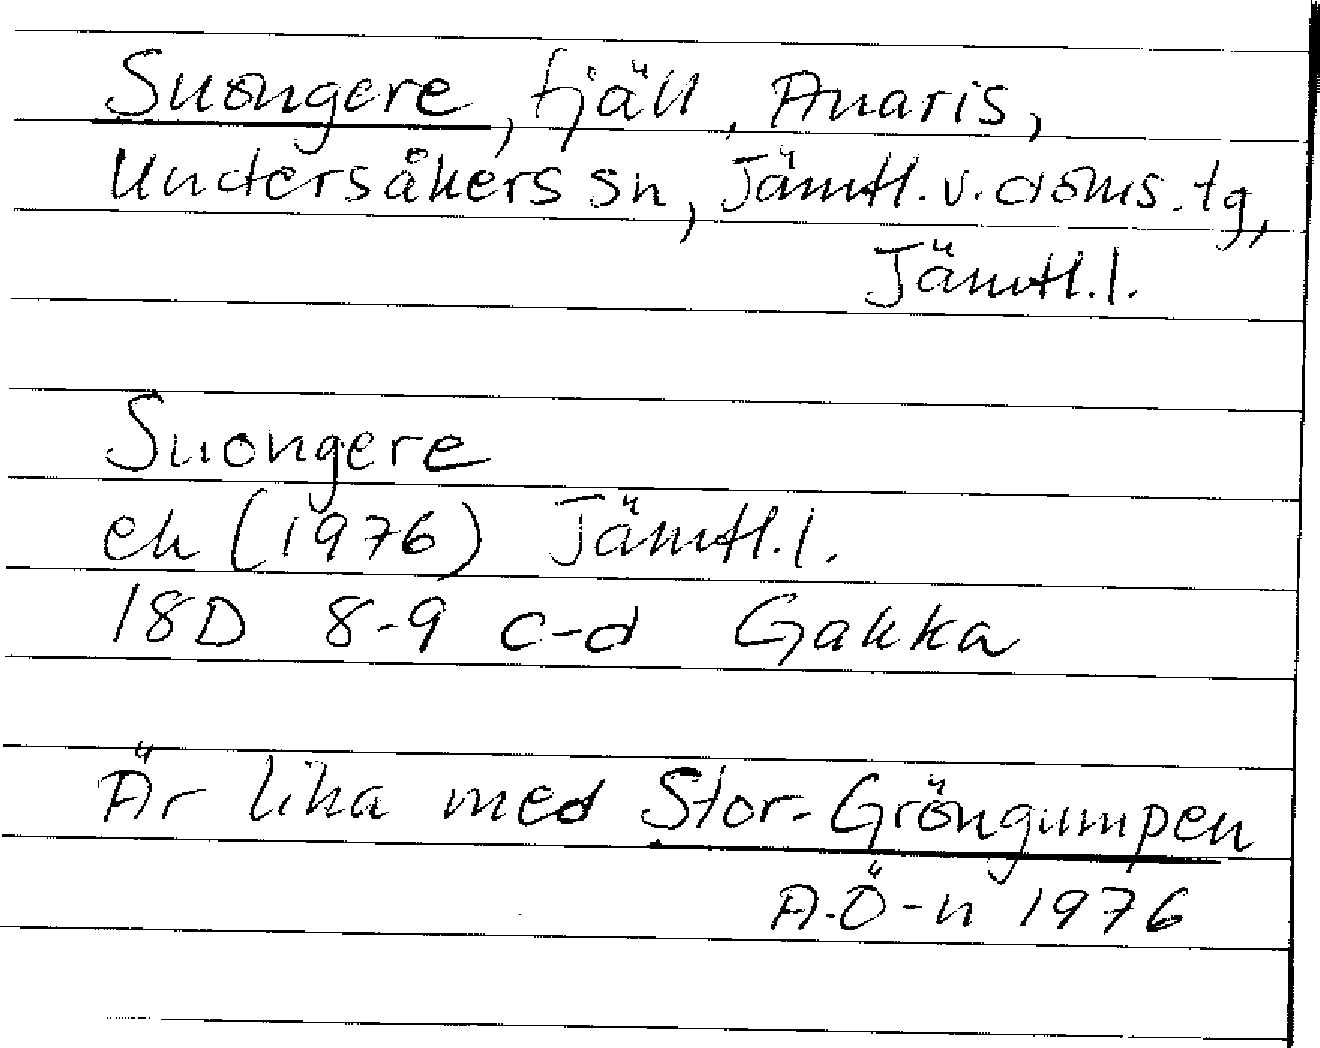 Suongere, fjäll, Anaris,
Undersåkers sn, Jämtl. v. doms. tg,
Jämtl. l.
Suongere
ek (1976) Jämtl. l.
18D 8-9 c-d Gakka
Är lika med Stor-Gröngumpen
A.Ö-n 1976